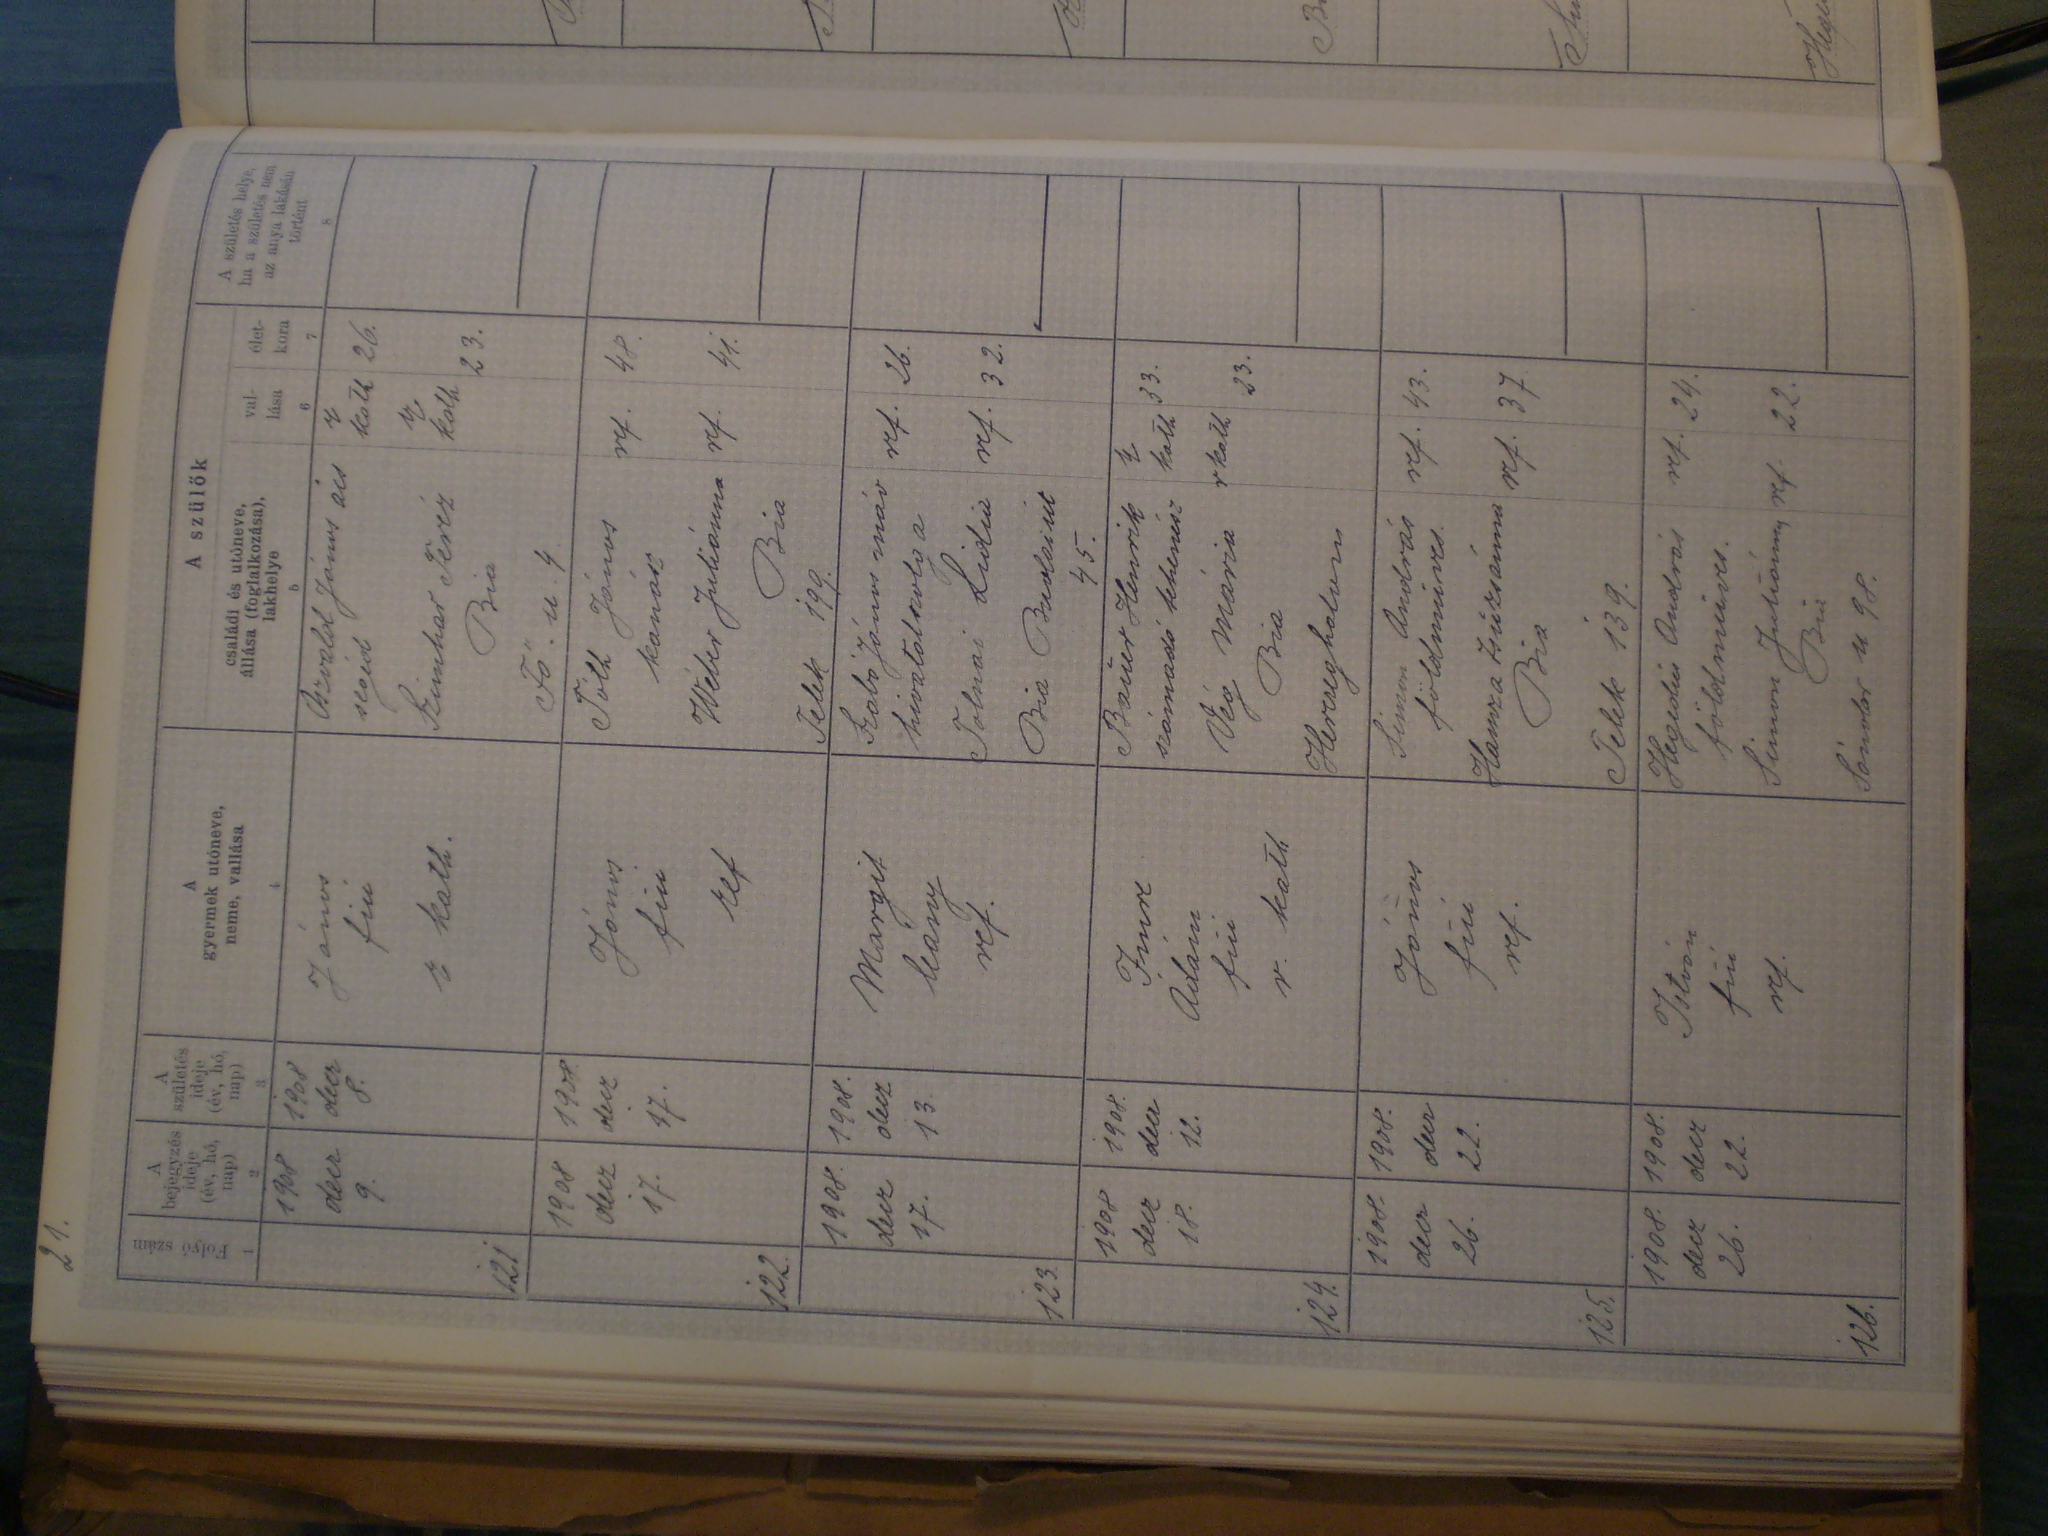 21.
A szülők
Folyó szám
A
bejegyzés
ideje
(év, hó,
nap)
A
születés
ideje
(év, hó,
nap)
A
gyermek utóneve,
neme, vallása
családi és utóneve,
állása (foglalkozása),
lakhelye
val-
lása
élet-
kora
A születés helye,
ha a születés nem
az anya lakásán
történt
1
2
3
4
5
6
7
8
121
1908
decz
9.
1908
decz
8.
János
fiú
r kath.
János ács
segéd
r
kath
26.
Teréz
r
kath
23.
Bia
Fő u. 4
122.
1908
decz
17.
1908.
decz
17.
János
fiú
ref
Tóth János
kanász
ref.
48.
Wéber Juliánna
ref.
41.
Bia
Telek 199.
123.
1908.
decz
17.
1908.
decz
13.
Margit
leány
ref.
Szabó János máv
hivatalszolga
ref.
26.
Tolnai Lidia
ref.
32.
Bia Budai út
45.
124.
1908
decz
18.
1908.
decz
12.
Imre
Ádám
fiú
r. kath
Bauer Henrik
számadó tehenész
r
kath
33.
Vég Mária
r kath
23.
Bia
Herczeghalom
125.
1908.
decz
26.
1908.
decz
22.
János
fiú
ref.
Simon András
földmíves.
ref.
43.
Hamza Zsuzsánna
ref.
37
Bia
Telek 139.
126.
1908.
decz
26.
1908.
decz
22.
István
fiú
ref.
Hegedüs András
földmíves.
ref.
24.
Simon Julianna
ref.
22.
Bia
Sándor u 98.